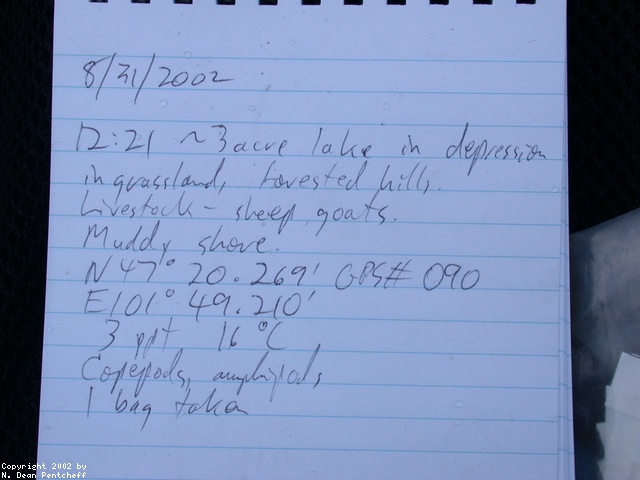 8/31/2002
12:21 ~3 acre lake in depression
in grassland, forested hills.
Livestock - sheep, goats.
Muddy shore.
N 47° 20.269' GPS# 090
E101° 49.210'
3 ppt, 16 °C
Copepods, amphipods,
1 bag taken
Copyright 2002 by
N. Dean Pentcheff